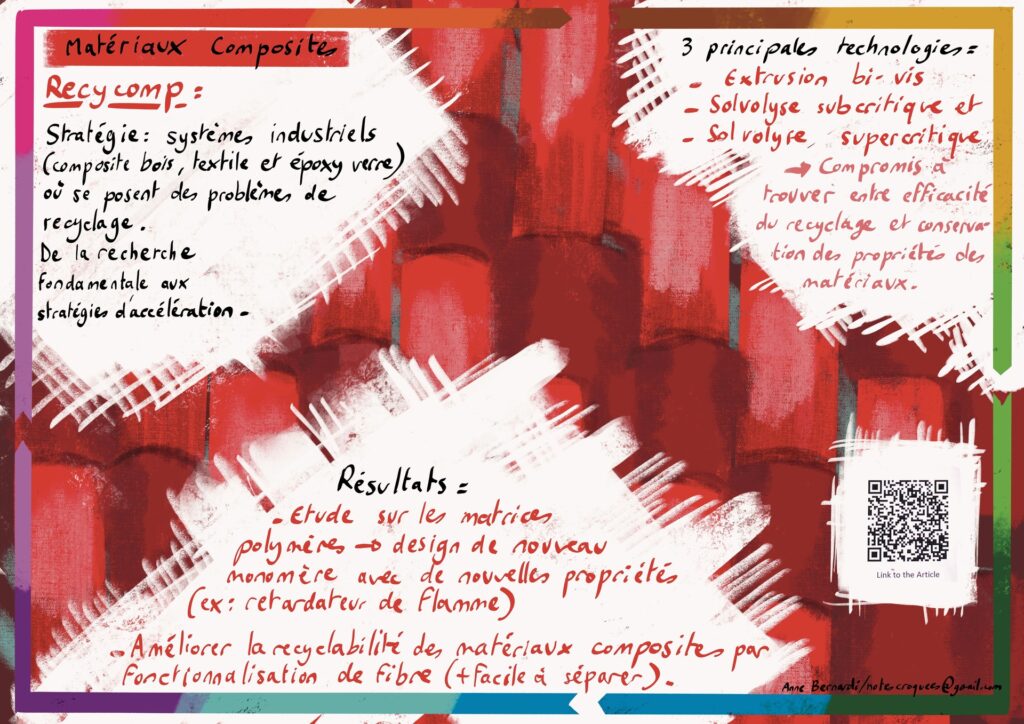 Matériaux Composites
Recycomp :
Stratégie : systèmes industriels
(composite bois, textile et époxy verre)
où se posent des problèmes de
recyclage.
De la recherche
fondamentale aux
stratégies d'accélération.
3 principales technologies :
- Extrusion bi-vis
- Solvolyse subcritique et
- Solvolyse supercritique
→ Compromis à
trouver entre efficacité
du recyclage et conserva-
tion des propriétés des
matériaux.
Résultats :
- Etude sur les matrices
polymères → design de nouveau
monomère avec de nouvelles propriétés
(ex : retardateur de flamme)
- Améliorer la recyclabilité des matériaux composites par
fonctionnalisation de fibre (+ facile à séparer).
Link to the Article
Anne Bernardi/notecroquees@gmail.com